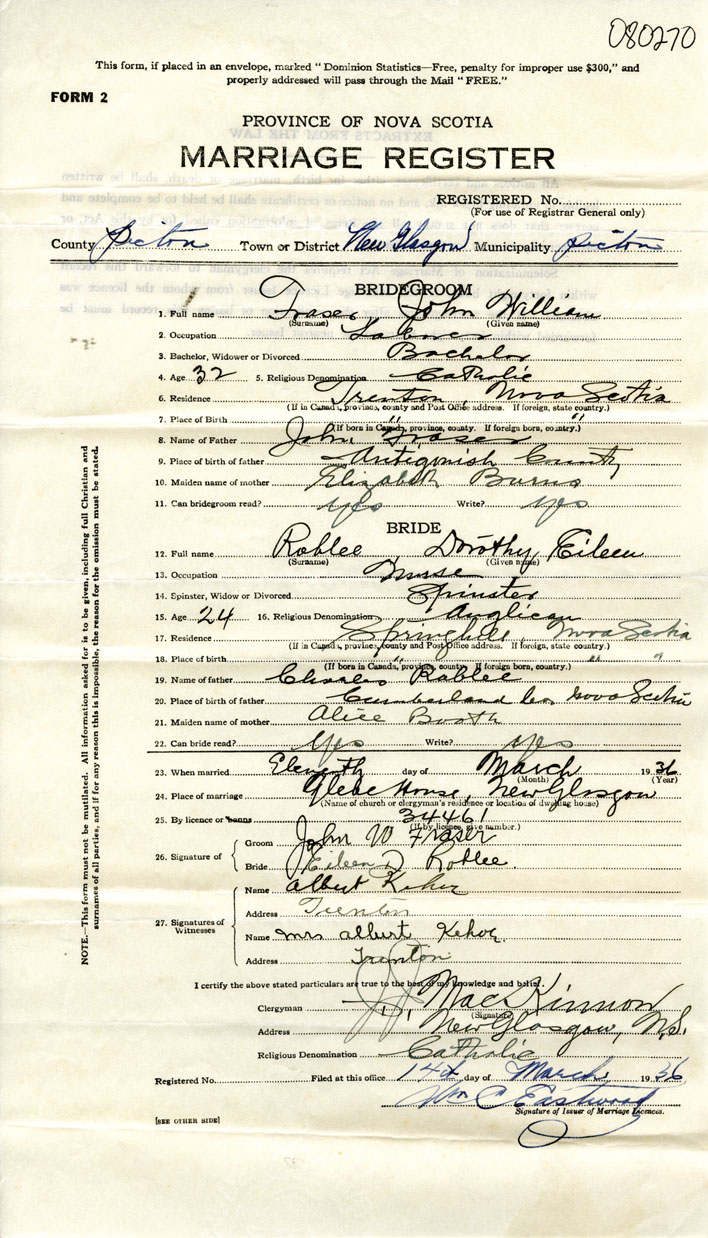 080270
This form, if placed in an envelope, marked "Dominion Statistics—Free, penalty for improper use $300," and
properly addressed will pass through the Mail "FREE."
FORM 2
PROVINCE OF NOVA SCOTIA
MARRIAGE REGISTER
REGISTERED No.
(For use of Registrar General only)
County Pictou Town or District New Glasgow Municipality Pictou
BRIDEGROOM
1. Full name Fraser John William
(Surname) (Given name)
2. Occupation Laborer
3. Bachelor, Widower or Divorced Bachelor
4. Age 32 5. Religious Denomination Catholic
6. Residence Trenton, Nova Scotia
(If in Canada, province, county and Post Office address. If foreign, state country.)
7. Place of Birth " "
(If born in Canada, province, county. If foreign born, country.)
8. Name of Father John Fraser
9. Place of birth of father Antigonish County
10. Maiden name of mother Elizabeth Burns
11. Can bridegroom read? yes Write? yes
BRIDE
12. Full name Roblee Dorothy Eileen
(Surname) (Given name)
13. Occupation Nurse
14. Spinster, Widow or Divorced Spinster
15. Age 24 16. Religious Denomination Anglican
17. Residence Springhill, Nova Scotia
(If in Canada, province, county and Post Office address. If foreign, state country.)
18. Place of birth " " "
(If born in Canada, province, county. If foreign born, country.)
19. Name of father Charles Roblee
20. Place of birth of father Cumberland Co. Nova Scotia
21. Maiden name of mother Alice Booth
22. Can bride read? yes Write? yes
23. When married Eleventh day of March 1936
(Month) (Year)
24. Place of marriage Glebe House, New Glasgow
(Name of church or clergyman's residence or location of dwelling house)
25. By licence or banns 34461
(If by licence give number.)
26. Signature of Groom John W Fraser
Bride Eileen D Roblee
27. Signatures of Witnesses
Name Albert Kehoe
Address Trenton
Name Mrs Albert Kehoe
Address Trenton
I certify the above stated particulars are true to the best of my knowledge and belief.
Clergyman MacKinnon
(Signature)
Address New Glasgow, N.S.
Religious Denomination Catholic
Registered No. Filed at this office 14th day of March 1936
Wm C Eastwood
Signature of Issuer of Marriage Licences.
[SEE OTHER SIDE]
NOTE.—This form must not be mutilated. All information asked for is to be given, including full Christian and
surnames of all parties, and if for any reason this is impossible, the reason for the omission must be stated.